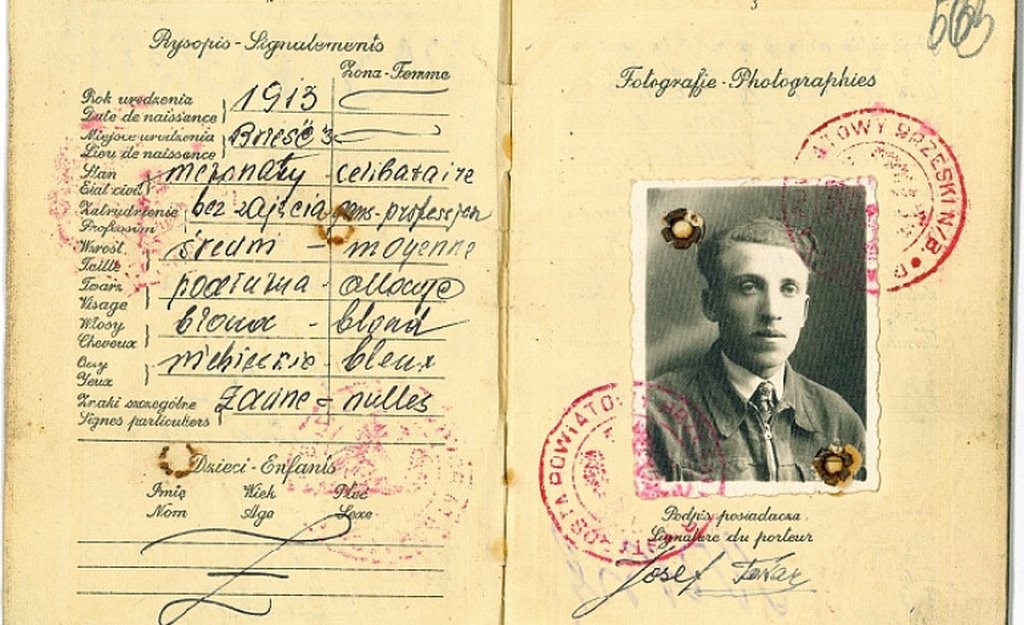 Rysopis - Signalements
Żona - Femme
Rok urodzenia
Date de naissance
1913
Miejsce urodzenia
Lieu de naissance
Brześć
Stan
Etat civil
nieżonaty - celibataire
Zatrudnienie
Profession
bez zajęcia
Wzrost
Taille
średni - moyenne
Twarz
Visage
podłużna - allongé
Włosy
Cheveux
blond - blond
Oczy
Yeux
niebieskie - bleux
Znaki szczególne
Signes particuliers
żadne - nulles
Dzieci - Enfants
Imię Wiek Płeć
Nom Age Sexe
3
Fotografje - Photographies
TOWY BRZESKI N/B
STA POWIATO
Podpis posiadacza
Signature du porteur
Josef Tokar